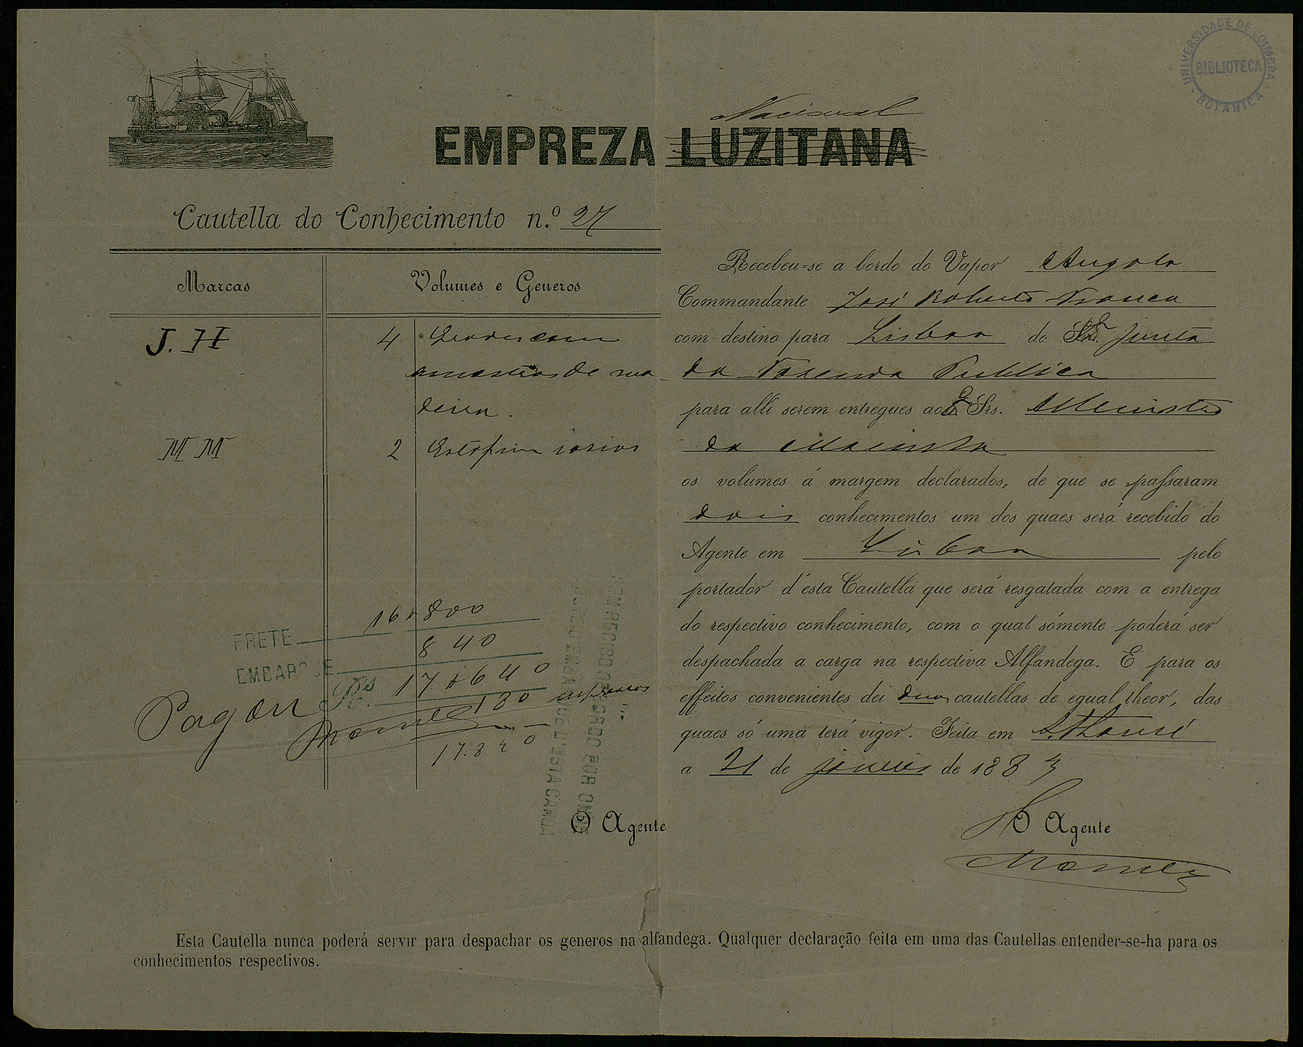 UNIVERSIDADE DE COIMBRA
BIBLIOTECA
BOTANICA
Nacional
EMPREZA LUZITANA
Cautella do Conhecimento n.º 27
Marcas
Volumes e Generos
J. H 4 com
amostras de ma-
deira.
M M 2 varios
FRETE 16$800
EMBARQUE 840
Rs 17$640
130 impressos
Pagou
Recebeu-se a bordo do Vapor Angola
Commandante José Roberto Franco
com destino para Lisboa do Srs. Junta
da Fazenda Publica
para alli serem entregues ao Srs. Ministro
da Marinha
os volumes á margem declarados, de que se passaram
dois conhecimentos um dos quaes será recebido do
Agente em Lisboa pelo
portador d'esta Cautella que será resgatada com a entrega
do respectivo conhecimento, com o qual sómente poderá ser
despachada a carga na respectiva Alfandega. E para os
effeitos convenientes dei duas cautellas de egual theor, das
quaes só uma terá vigor. Feita em S. Thomé
a 21 de janeiro de 188
O Agente
O Agente
Esta Cautella nunca poderá servir para despachar os generos na alfandega. Qualquer declaração feita em uma das Cautellas entender-se-ha para os
conhecimentos respectivos.